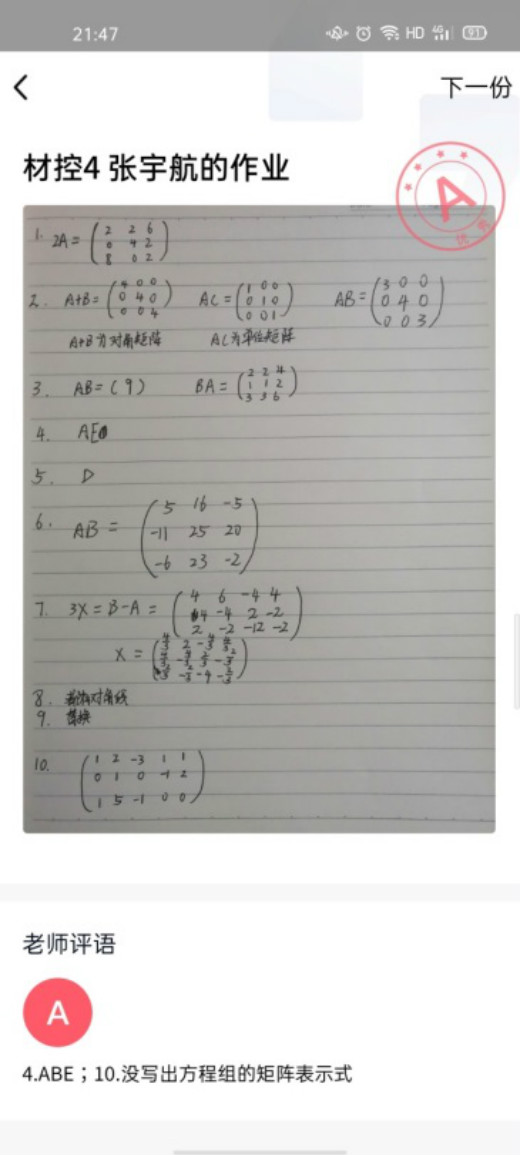 21:47 HD 4G 91
下一份
材控4 张宇航的作业
A
优秀
1. 2A = ( 2 2 6
0 4 2
8 0 2 )
2. A+B = ( 4 0 0
0 4 0
0 0 4 ) AC = ( 1 0 0
0 1 0
0 0 1 ) AB = ( 3 0 0
0 4 0
0 0 3 )
A+B为对角矩阵 AC为单位矩阵
3. AB = (9) BA = ( 2 2 4
1 1 2
3 3 6 )
4. AE
5. D
6. AB = ( 5 16 -5
-11 25 20
-6 23 -2 )
7. 3X = B-A = ( 4 6 -4 4
4 -4 2 -2
2 -2 -12 -2 )
X = ( 4/3 2 -4/3 4/3
4/3 -4/3 2/3 -2/3
2/3 -2/3 -4 -2/3 )
8. 对角线
9. 替换
10. ( 1 2 -3 1 1
0 1 0 -1 2
1 5 -1 0 0 )
老师评语
A
4.ABE；10.没写出方程组的矩阵表示式